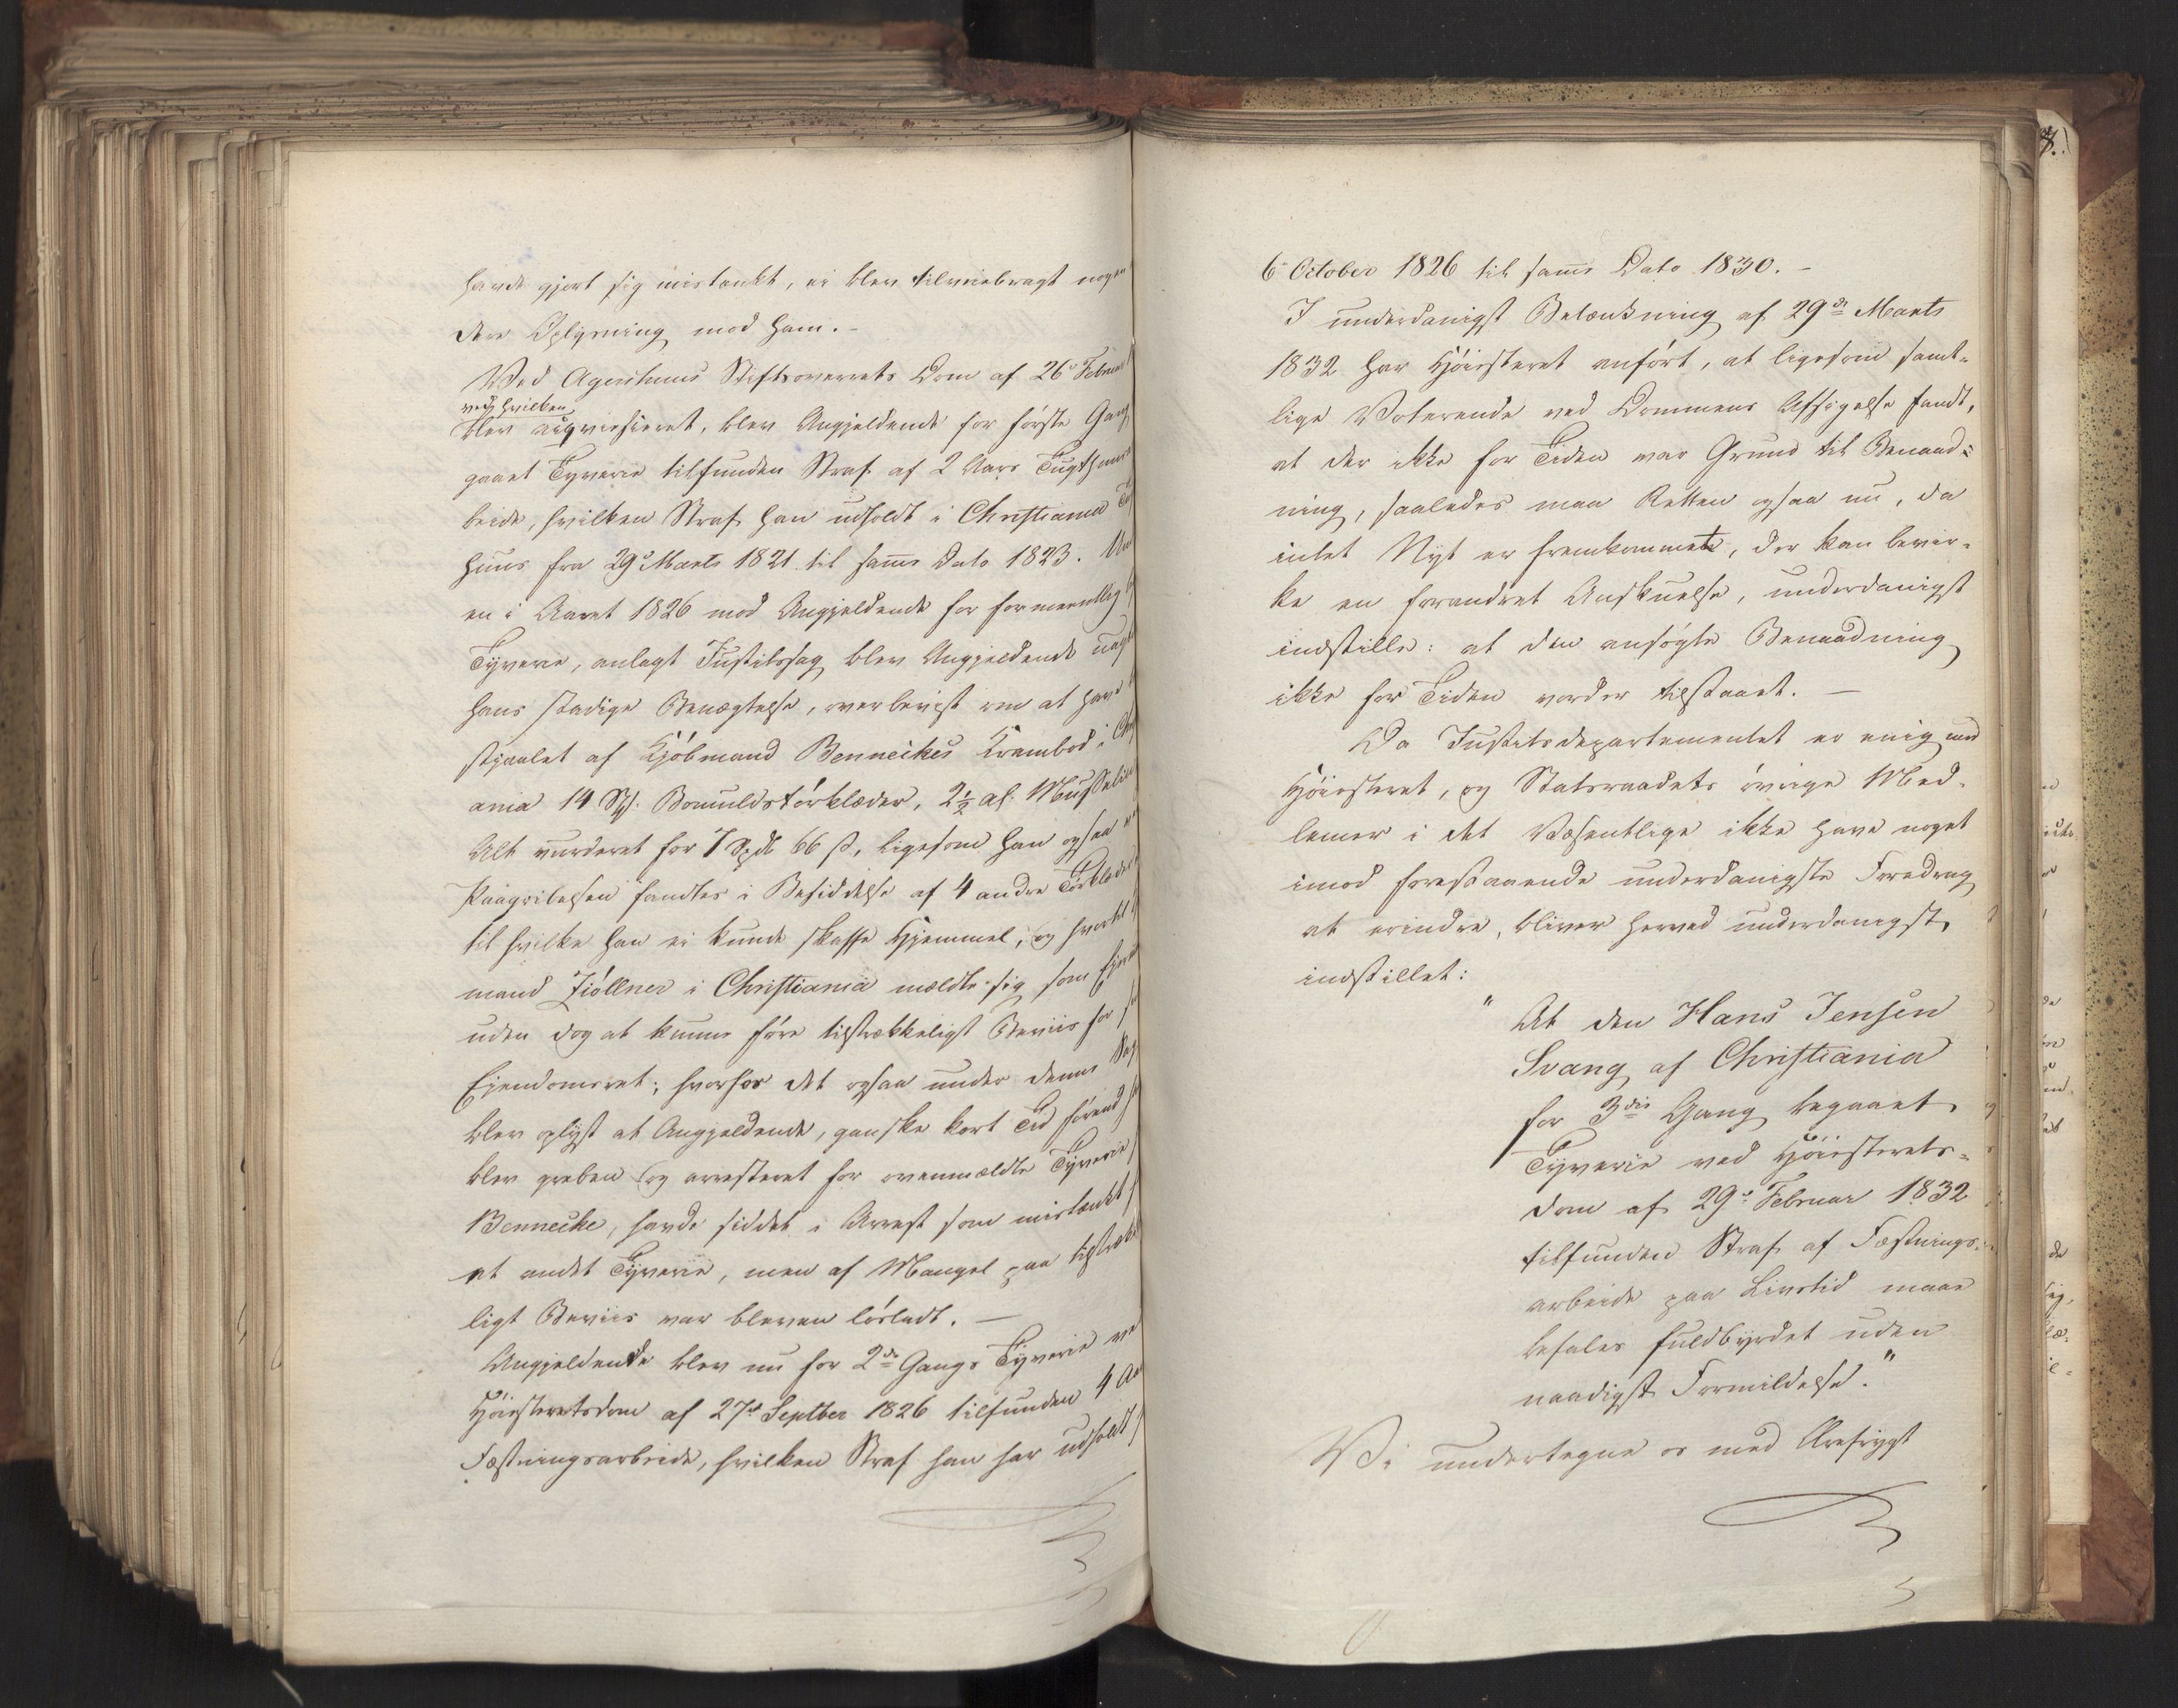 havde gjort sig mistænkt, ei blev tilveiebragt nogen
dere Oplysning mod ham.-
Ved Agershuus Stiftsoverrets Dom af 26de Februar
ved hvilken
blev acqviesceret, blev Angjeldende for første Gang
gaaet Tyverie tilfunden Straf af 2 Aars Tugthuus
beide, hvilken Straf han udholdt i Christiania
huus fra 29de Marts 1821 til samme Dato 1823.
en i Aaret 1826 mod Angjeldende for formeentlig
Tyverie, anlagt Justitssag blev Angjeldende
hans stadige Benægtelse, overbeviist om at have
stjaalet af Kjøbmand Benneckes Krambod i Chr
ania 14 St. Bomuldstørklæder, 2½ Al. Mussel
Alt vurderet for 7 Spd 66 s, ligesom han ogsaa
Paagribelsen fandtes i Besiddelse af 4 andre Tørklæder
til hvilke han ei kunde skaffe Hjemmel, og hvortil
mand Ziøllner i Christiania meldte sig som Eier
uden dog at kunne føre tilstrækkeligt Beviis for
Eiendomsret; hvorhos det ogsaa under denne Sag
blev oplyst at Angjeldende, ganske kort Tid førend
blev greben og arresteret for ovenmeldte Tyverie
Bennecke, havde siddet i Arrest som mistænkt
et andet Tyverie, men af Mangel paa tilstræk
ligt Beviis var bleven løsladt. —
Angjeldende blev nu for 2de Gangs Tyverie ved
Høiesteretsdom af 27de Septber 1826 tilfunden 4 Aa
Fæstningsarbeide, hvilken Straf han har udholdt
6te October 1826 til samme Dato 1830.-
I underdanigst Betænkning af 29de Marts
1832 har Høiesteret anført, at ligesom samt-
lige Voterende ved Dommens Afsigelse fandt,
at der ikke for Tiden var Grund til Benaad-
ning, saaledes maa Retten ogsaa nu, da
intet Nyt er fremkommet, der kan bevir-
ke en forandret Anskuelse, underdanigst
indstille: at den ansøgte Benaadning
ikke for Tiden vorder tilstaaet. —
Da Justitsdepartementet er enig med
Høiesteret, og Statsraadets øvrige Med-
lemer i det Væsentlige ikke have noget
imod forestaaende underdanigste Foredrag
at erindre, bliver herved underdanigst
indstillet:
"At den Hans Jensen
Svang af Christiania
for 3die Gang begaaet
Tyverie ved Høiesterets-
dom af 29de Februar 1832
tilfunden Straf af Fæstnings-
arbeide paa Livstid maae
befales fuldbyrdet uden
naadigst Formildelse."
Vi undertegne os med Ærefrygt